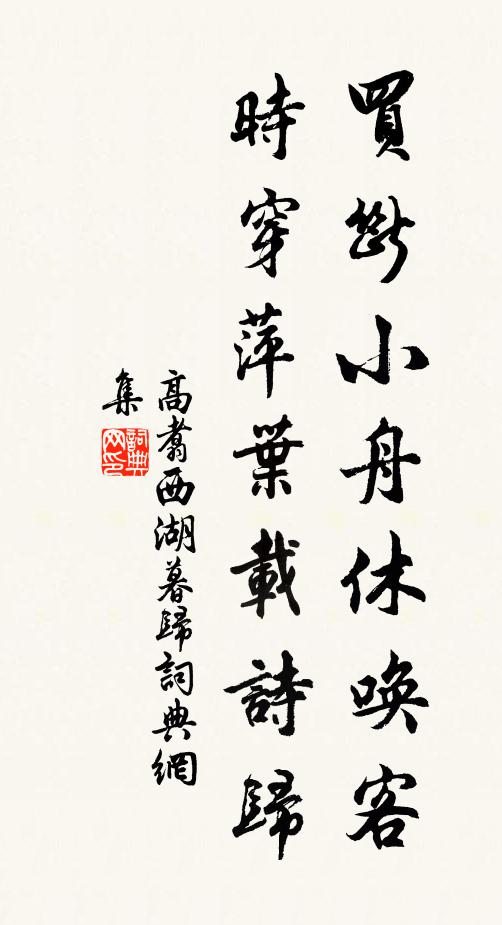 買断小舟休喚客
時穿萍葉載詩歸
高翥西湖暮歸詞典網
集
詞典
网印